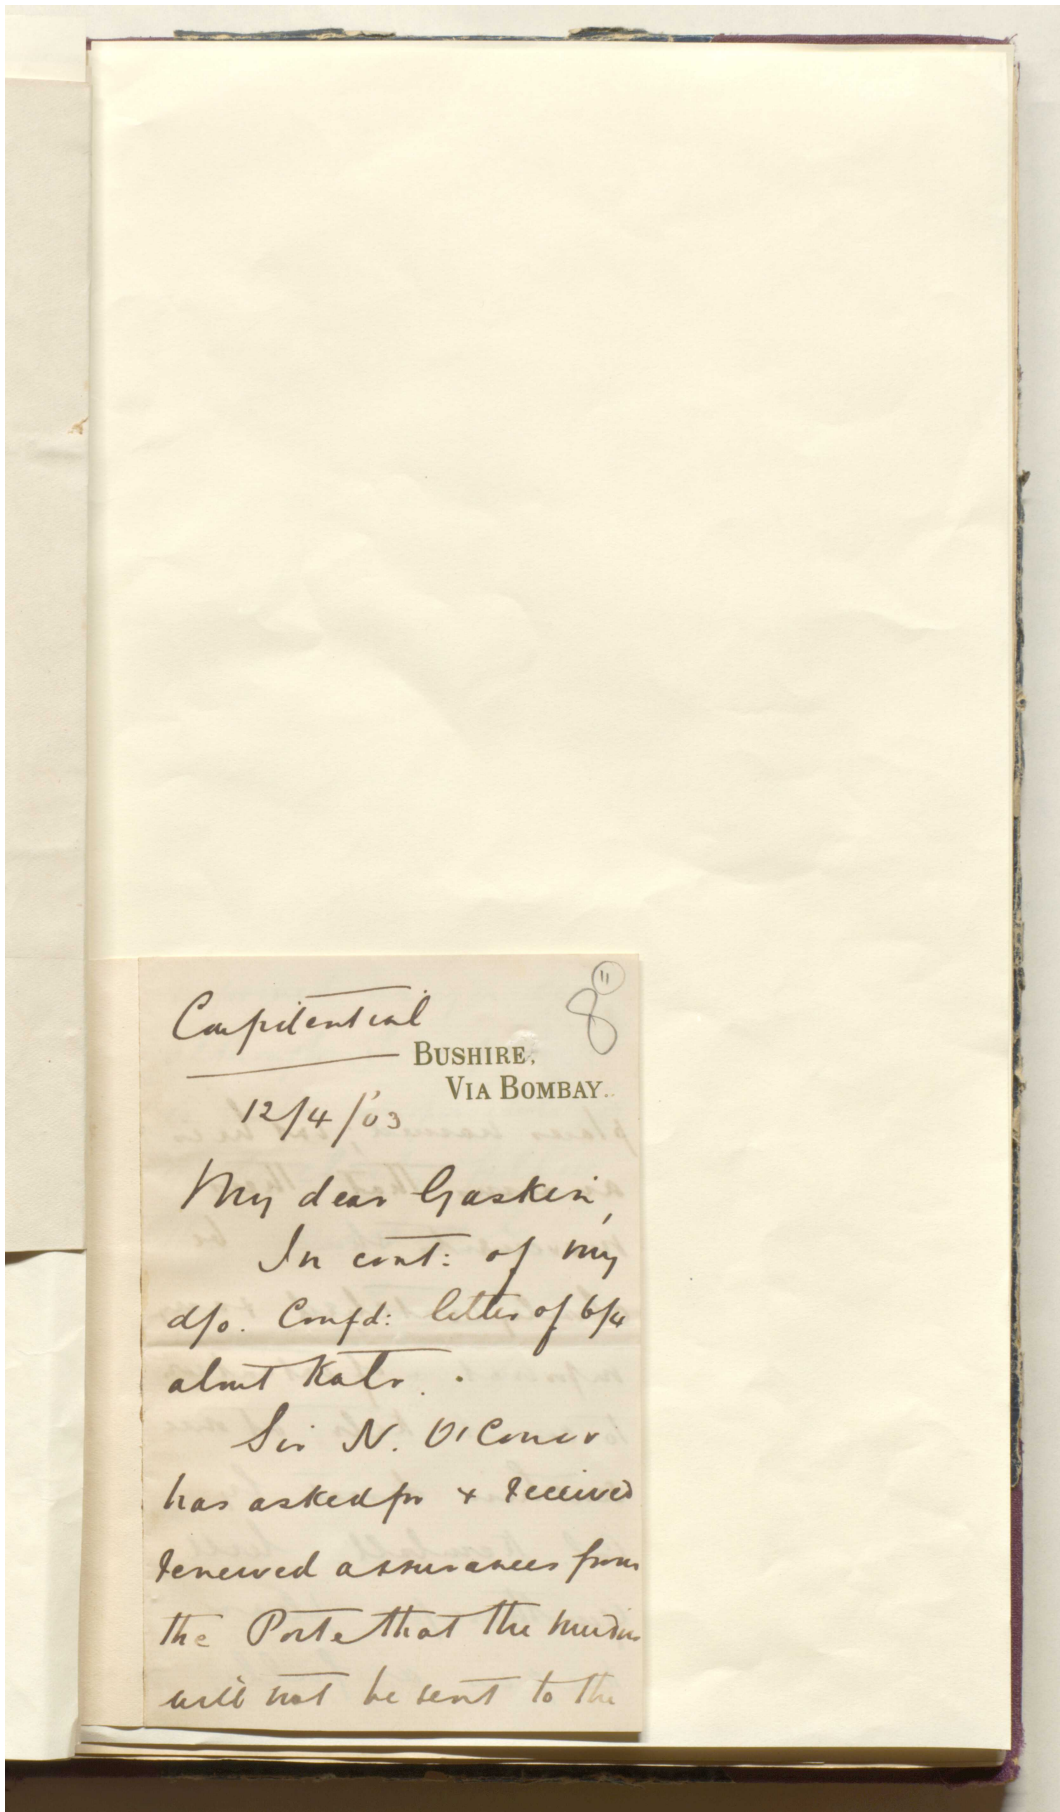 Confidential
8 11
BUSHIRE,
VIA BOMBAY.
12/4/'03
My dear Gaskin,
In cont: of my
d/o. Confd: letter of 6/4
about Katr.
Sir N. O'Conor
has asked for & received
renewed assurances from
the Porte that the Mudirs
will not be sent to the